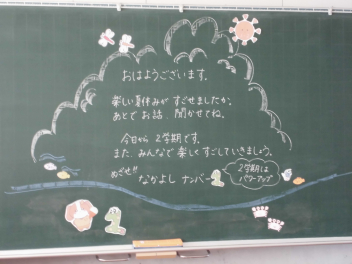 おはようございます。
楽しい夏休みが すごせましたか。
あとで お話、聞かせてね。
今日から 2学期です。
また、みんなで 楽しく すごしていきましょう。
めざせ!!
なかよし ナンバー
2学期は
パワーアップ